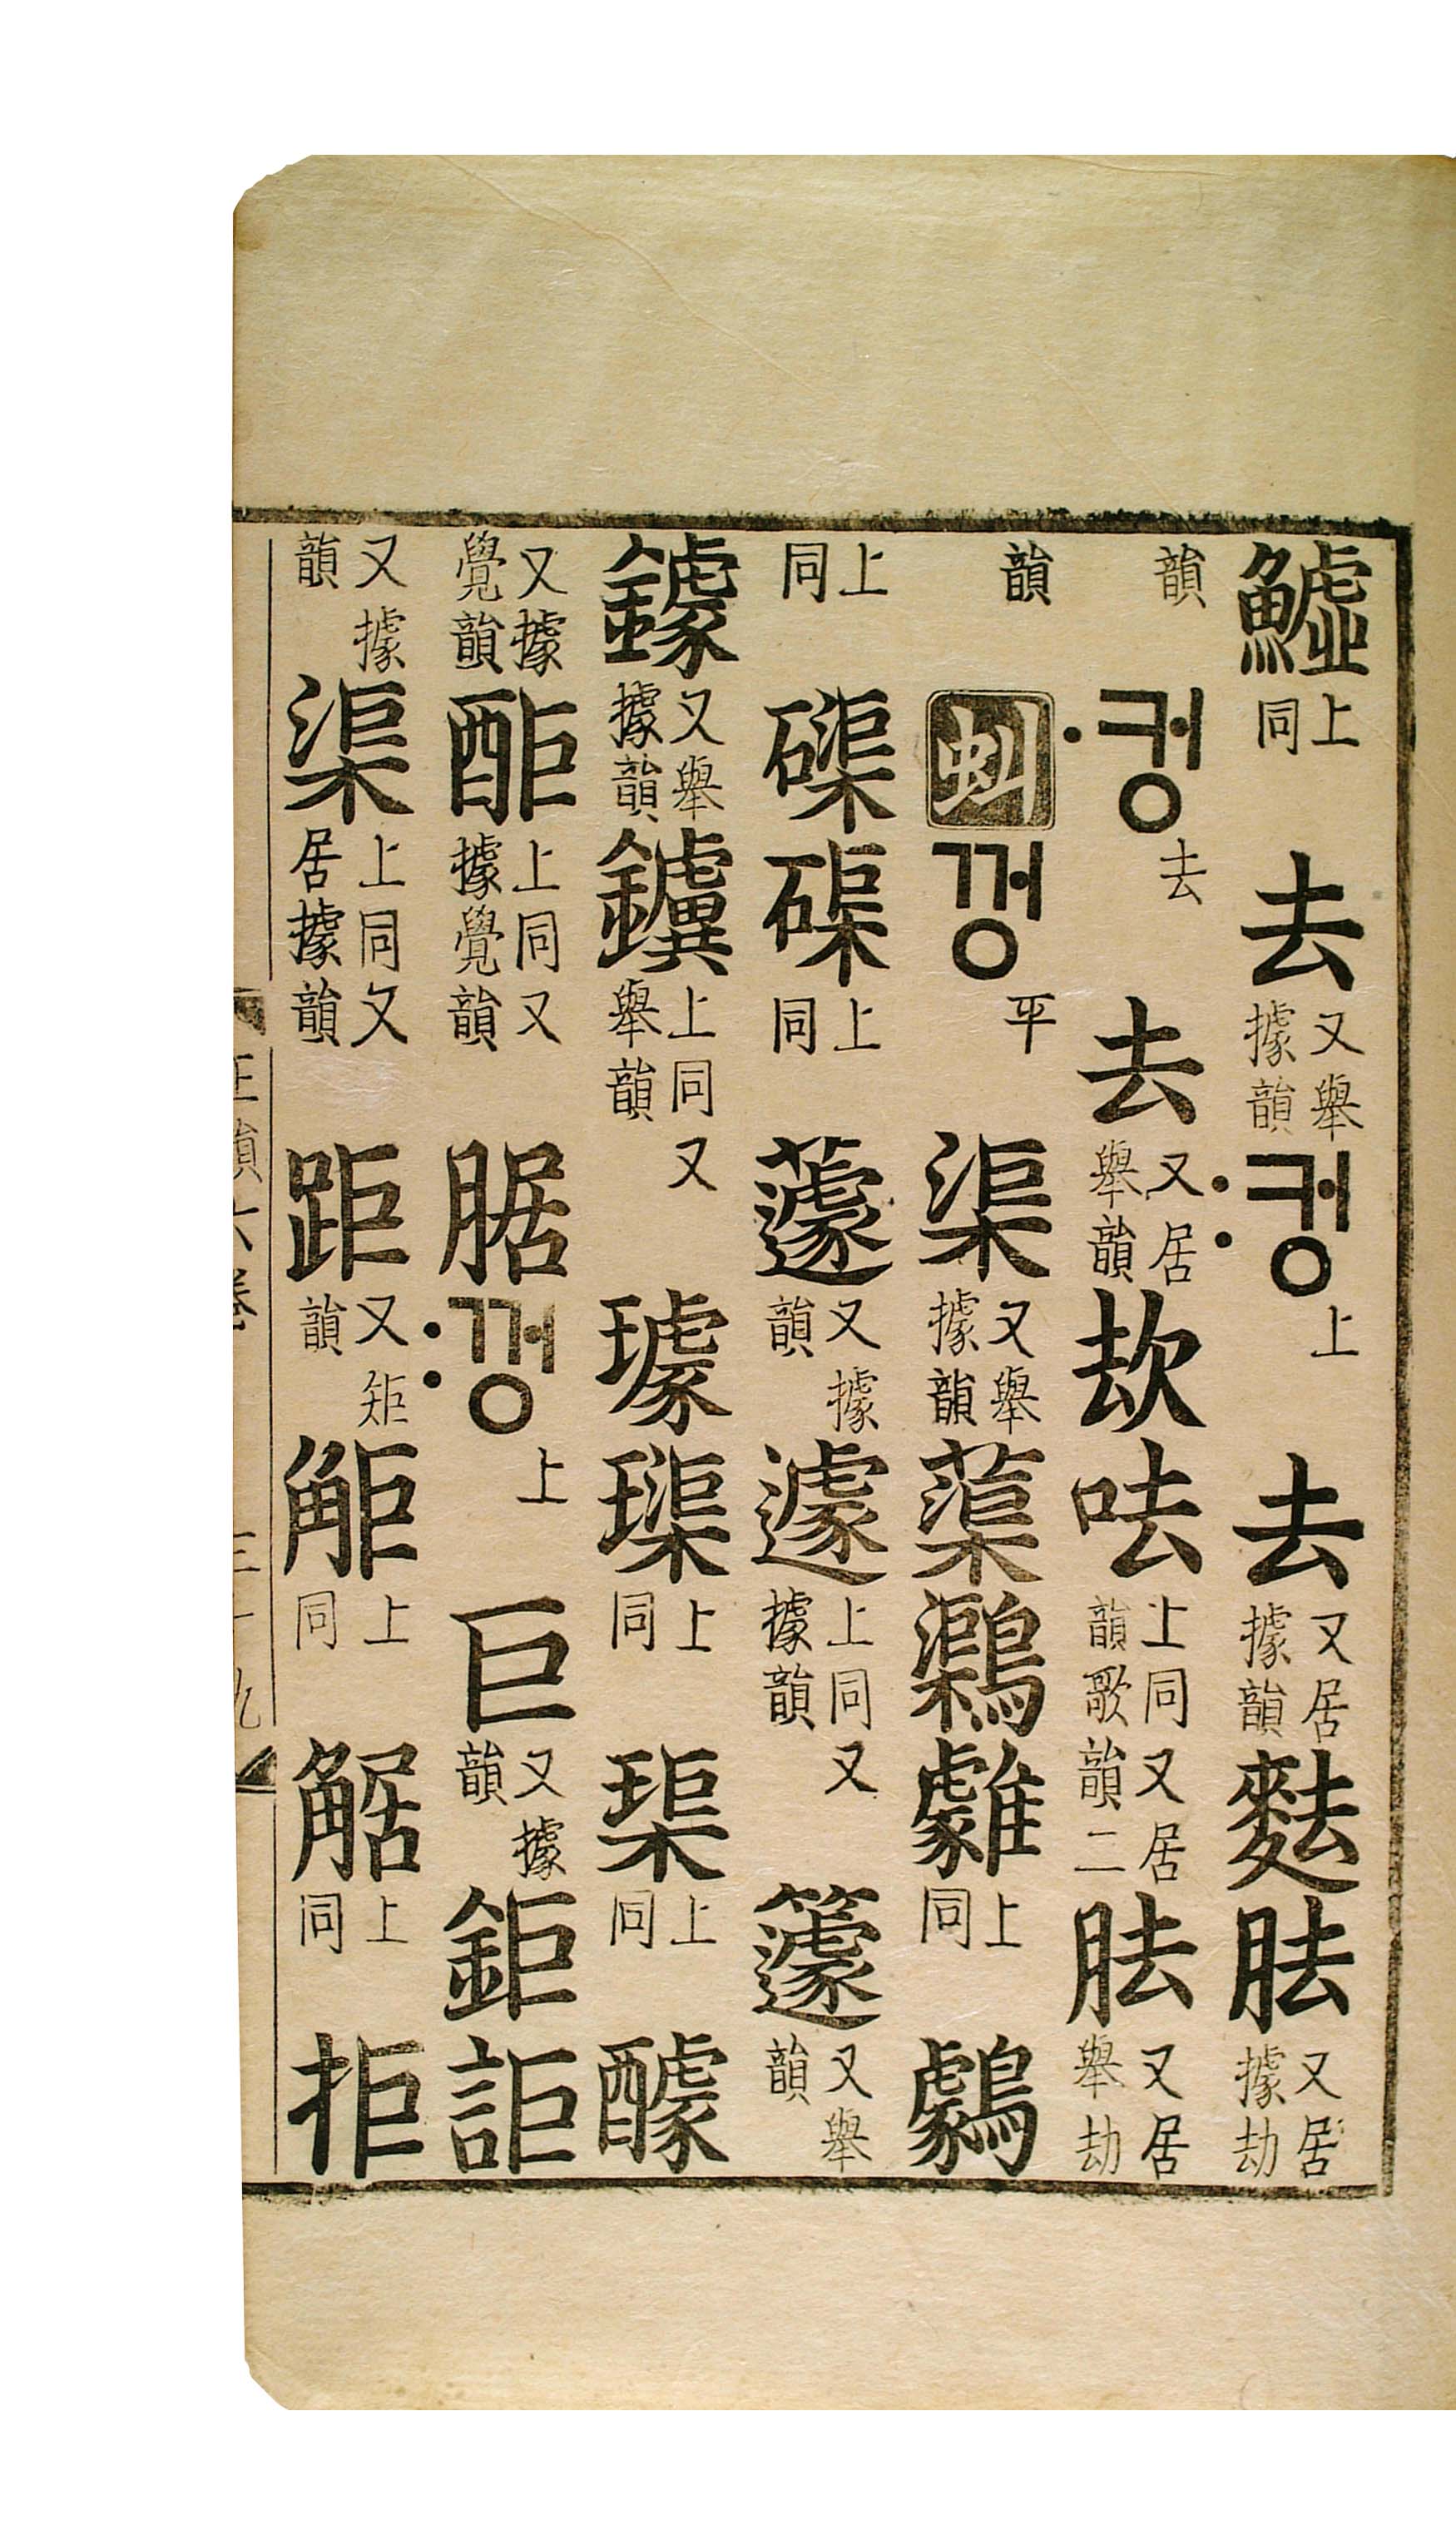 鱋上同 去又舉據韻 〯컹上 去又居據韻 麮胠又居據劫
韻 〮컹去 去又居舉韻 㰦呿上同又居韻歌韻二 胠又居舉劫
韻 虯 껑平 渠又舉據韻 蕖 上同
上同 磲 上同 蘧又據韻 遽上同又據韻 籧又舉韻
鐻又舉據韻 上同又舉韻 璩璖上同 上同 醵
又據覺韻 上同又據覺韻 腒 〯껑上 巨又據韻 鉅詎
又據韻 渠上同又居據韻 距又矩韻 上同 上同 拒
正韻六卷 三十九